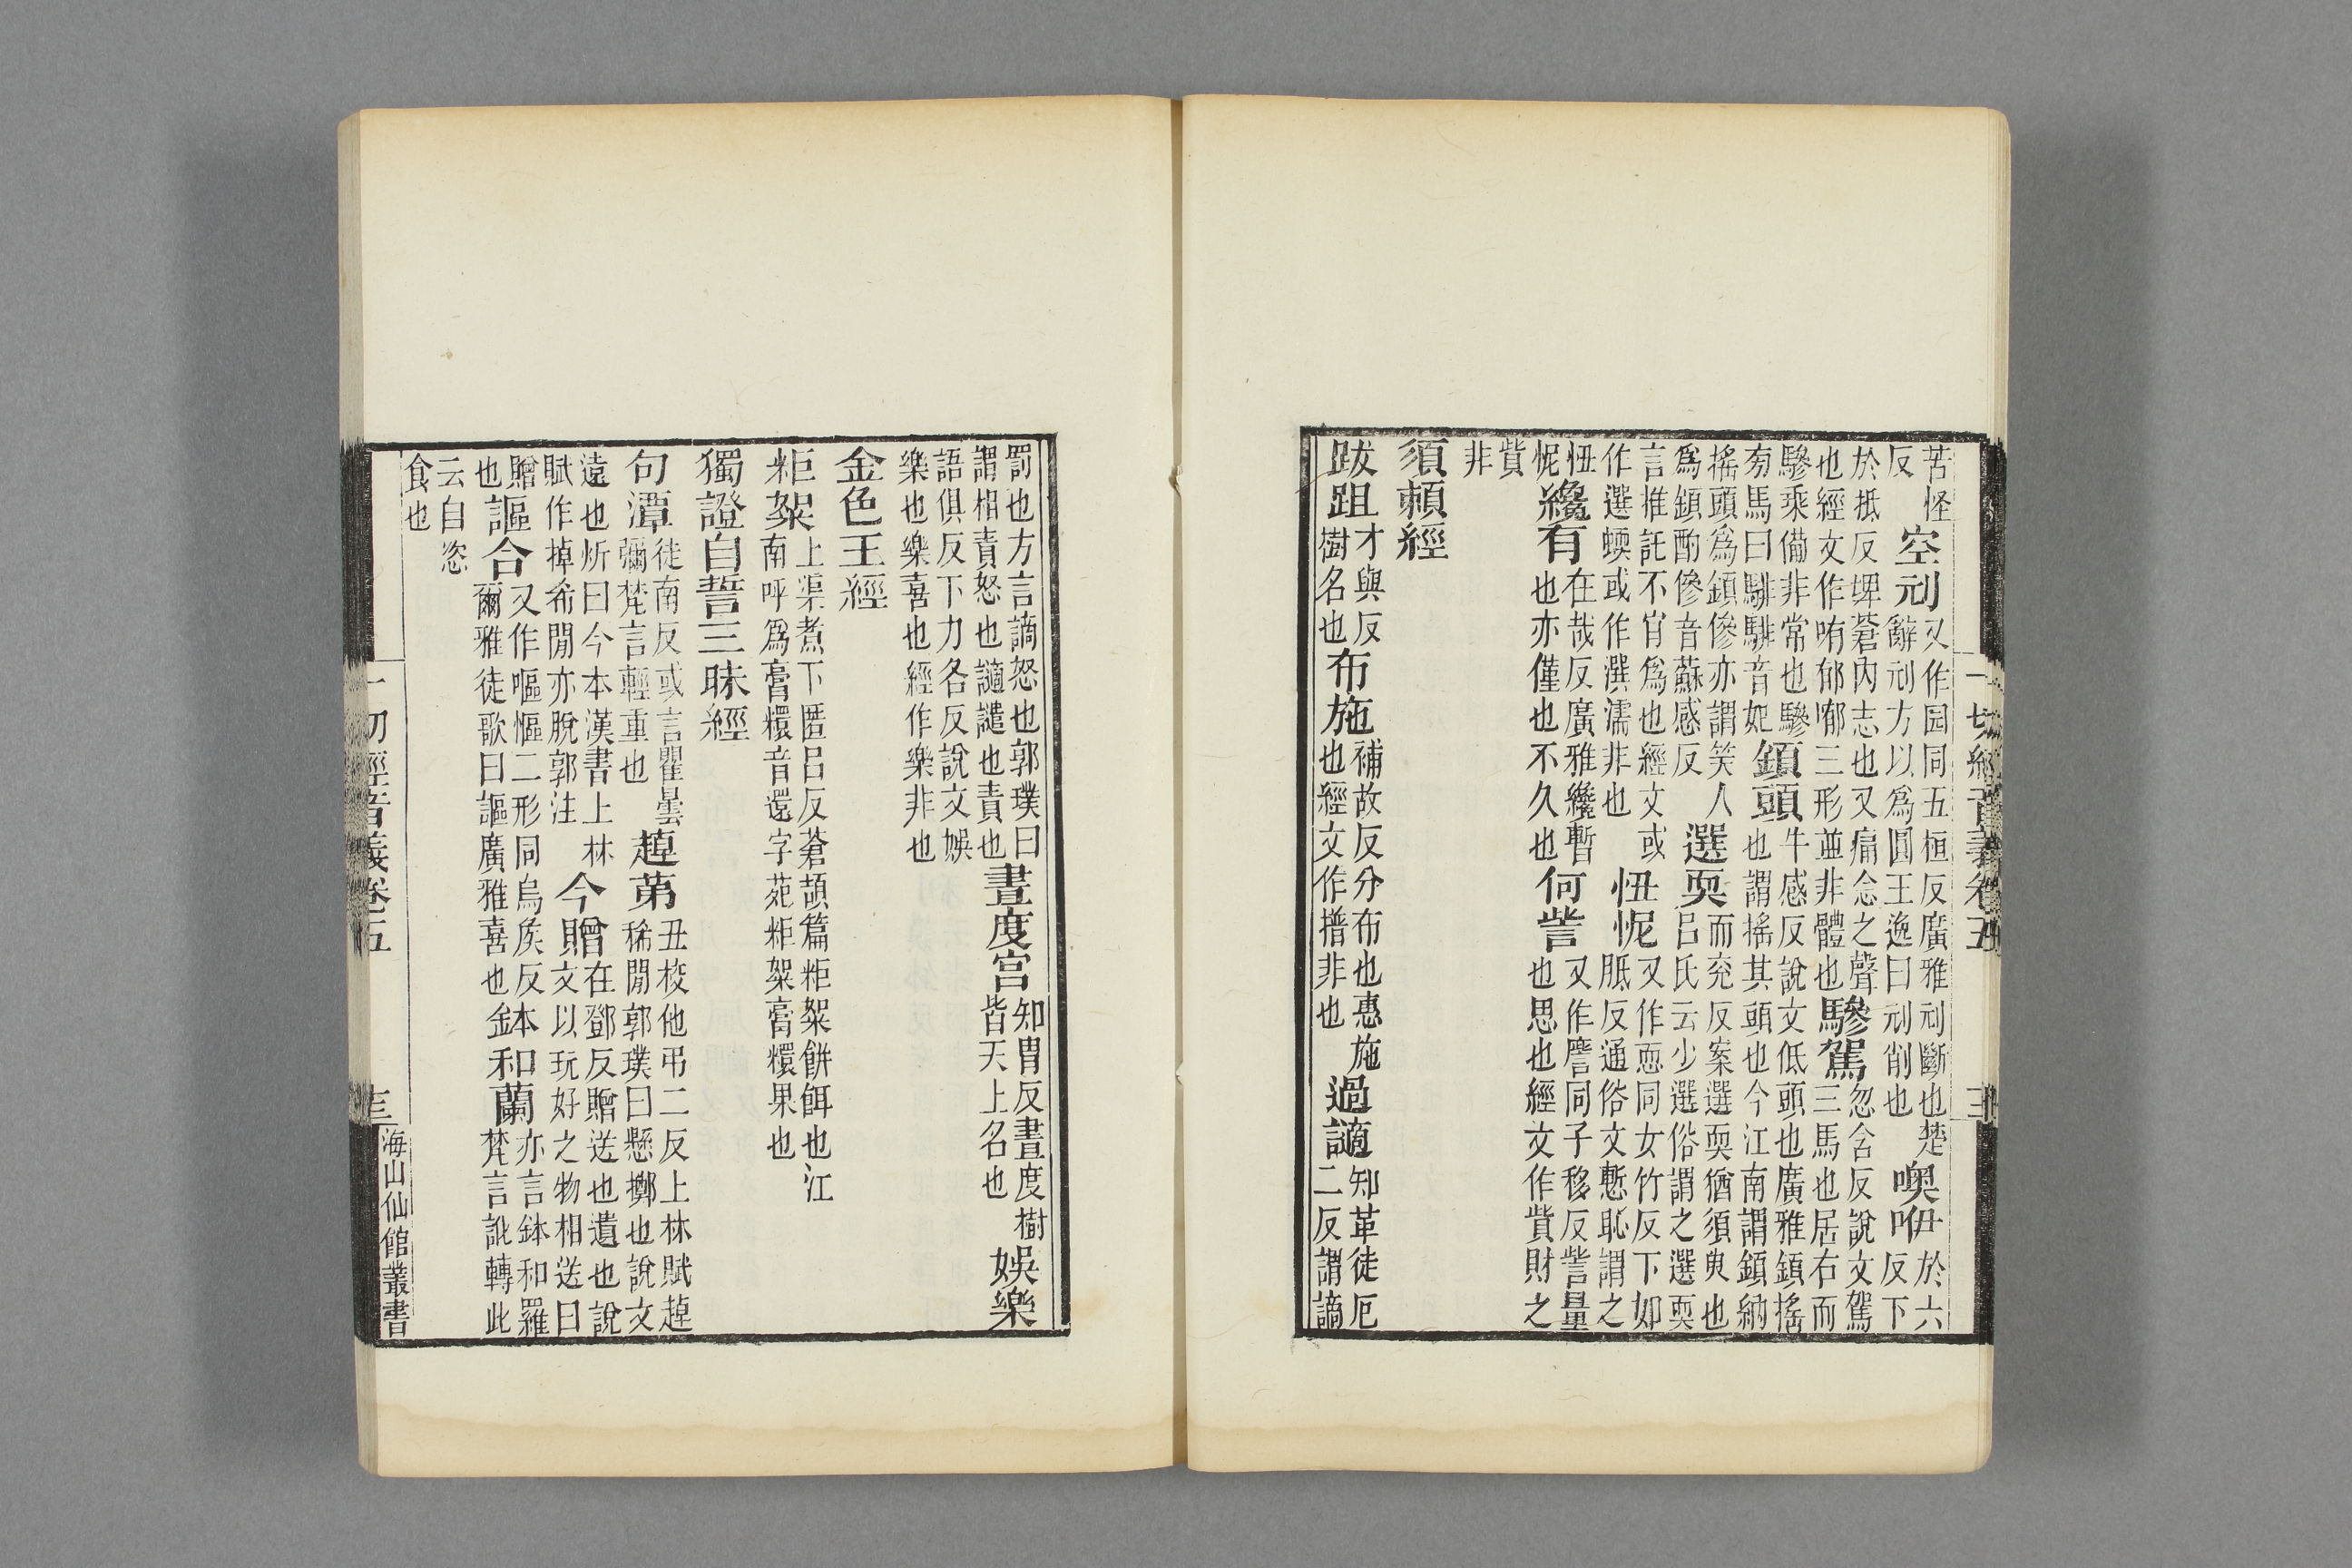 苦怪反空刓又作园同五桓反廣雅刓斷也楚辭刓方以爲圓王逸曰刓削也噢咿於六反下
於抵反埤蒼內志也又痛念之聲也經文作哊郁㗱三形並非體也驂駕忽含反說文駕三馬也居右而
驂乘備非常也驂夯馬曰騑騑音妃顉頭牛感反說文低頭也廣雅顉搖也謂搖其頭也今江南謂顉納
搖頭爲顉傪亦謂笑人爲顉酌傪音蘇感反選耎而兖反案選耎猶須臾也呂氏云少選俗謂之選耎
言推託不肯爲也經文或作選蝡或作潠濡非也忸怩又作恧同女竹反下如胝反通俗文慙恥謂之
忸怩纔有在哉反廣雅纔暫也亦僅也不久也何訾又作䚹同子移反訾量也思也經文作貲財之
貲非
須賴經
跋跙才與反樹名也布施補故反分布也惠施也經文作㨽非也過讁知革徒厄二反謂謫
一切經音義卷五
罰也方言謫怒也郭璞曰謂相責怒也讁譴也責也晝度宮知胄反晝度樹皆天上名也娛樂
語俱反下力各反說文娛樂也樂喜也經作樂非也
金色王經
粔籹上渠煮下匿呂反蒼頡篇粔籹餅餌也江南呼爲膏糫音還字苑粔籹膏糫果也
獨證自誓三昧經
句潭徒南反或言瞿曇彌梵言輕重也趠第丑校他弔二反上林賦趠稀閒郭璞曰懸擲也說文
遠也炘曰今本漢書上林賦作掉希閒亦脫郭注今贈在鄧反贈送也遺也說文以玩好之物相送曰
贈也謳合又作嘔慪二形同烏矦反爾雅徒歌曰謳廣雅喜也鉢和蘭亦言鉢和羅梵言訛轉此
云自恣食也
一切經音義卷五
海山仙館叢書